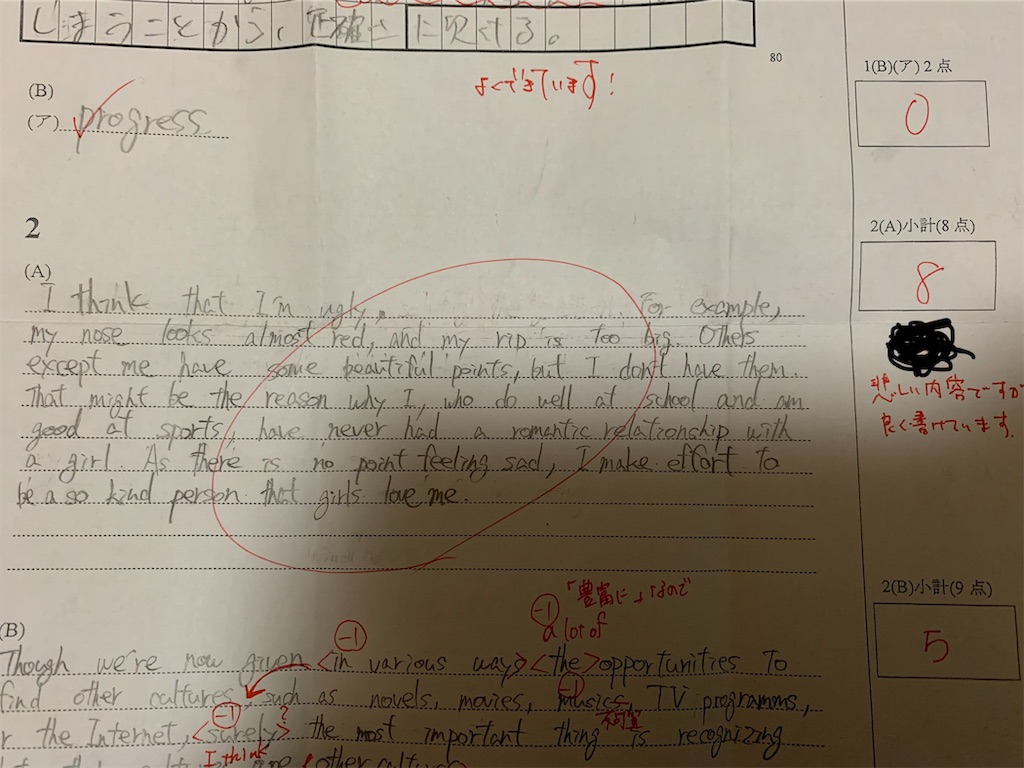 しまうことから、正確さに欠ける。
80
よくできています!
1(B)(ア) 2 点
0
(B)
(ア) progress
2
2(A)小計(8 点)
8
(A)
I think that I'm ugly. For example,
my nose looks almost red, and my rip is too big. Others
except me have some beautiful points, but I don't have them.
That might be the reason why I, who do well at school and am
good at sports, have never had a romantic relationship with
a girl. As there is no point feeling sad, I make effort to
be a so kind person that girls love me.
悲しい内容ですが
良く書けています。
2(B)小計(9 点)
5
(B)
-1
-1
「豊富に」なので
a lot of
Though we're now given <in various way> <the> opportunities to
-1
find other cultures, such as novels, movies, musics, TV programms,
-1
不可算
r the Internet, <surely> the most important thing is recognizing
I think
other cultures